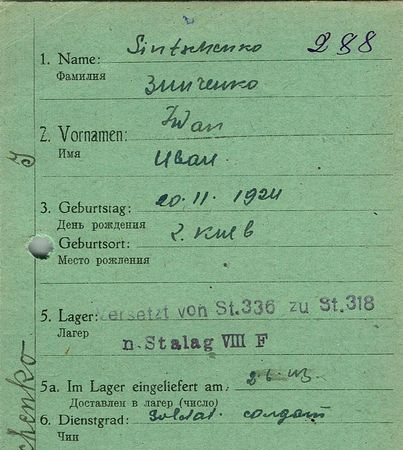 288
1. Name: Sintschenko
Фамилия Зинченко
2. Vornamen: Iwan
Имя Иван
3. Geburtstag: 20. 11. 1924
День рождения
Geburtsort: г. Киев
Место рождения
5. Lager: Versetzt von St.336 zu St.318
Лагерь n. Stalag VIII F
5a. Im Lager eingeliefert am:
Доставлен в лагерь (число)
6. Dienstgrad: Soldat. солдат
Чин
chenko